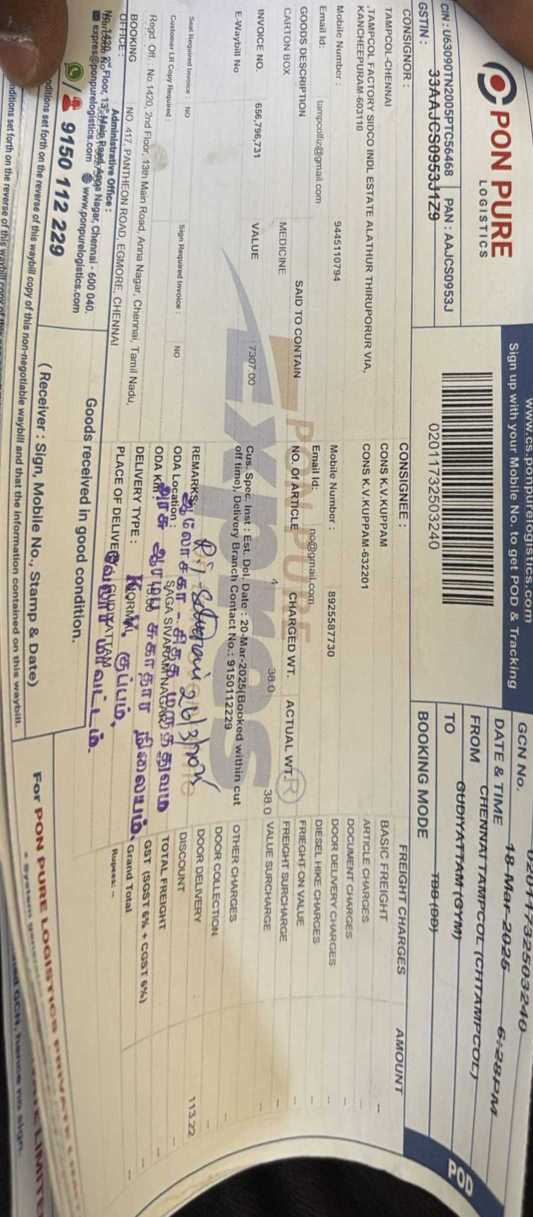 PON PURE
LOGISTICS
www.cs.ponpurelogistics.com
Sign up with your Mobile No. to get POD & Tracking
CIN : U63090TN2005PTC56468 PAN : AAJCS0953J
GSTIN : 33AAJCS0953J1Z9
02011732503240
GCN No. 02011732503240
DATE & TIME 18-Mar-2025 6:28PM
FROM CHENNAI TAMPCOL (CHTAMPCOL)
TO GUDIYATTAM (GYM)
BOOKING MODE TBB (DD)
POD
CONSIGNOR :
TAMPCOL-CHENNAI
,TAMPCOL FACTORY SIDCO INDL ESTATE ALATHUR THIRUPORUR VIA,
KANCHEEPURAM-603110
Mobile Number : 9445110794
Email Id: tampcolliz@gmail.com
CONSIGNEE :
CONS K.V.KUPPAM
CONS K.V.KUPPAM-632201
Mobile Number : 8925587730
Email Id: no@gmail.com
GOODS DESCRIPTION SAID TO CONTAIN NO. Of ARTICLE CHARGED WT. ACTUAL WT.
CARTON BOX MEDICINE 4 38.0 38.0
INVOICE NO. 656,796,731 VALUE 7307.00
E-Waybill No
Cus. Spec. Inst : Est. Del. Date : 20-Mar-2025(Booked within cut
off time), Delivery Branch Contact No.: 9150112229
Seal Required Invoice : NO Sign Required Invoice : NO
Customer LR Copy Required :
REMARKS:
ODA Location : SAGA SIVARAM NAGAR
ODA KM :
DELIVERY TYPE : NORMAL
PLACE OF DELIVERY GUDIYATTAM
26/3/2025
ஆலோசகர் - சித்த மருத்துவம்
அரசு ஆரம்ப சுகாதார நிலையம்,
K.V. குப்பம்,
வேலூர் மாவட்டம்.
Regd. Off. No 1420, 2nd Floor, 13th Main Road, Anna Nagar, Chennai, Tamil Nadu,
BOOKING OFFICE : NO. 417, PANTHEON ROAD, EGMORE, CHENNAI
FREIGHT CHARGES AMOUNT
BASIC FREIGHT --
ARTICLE CHARGES --
DOCUMENT CHARGES --
DOOR DELIVERY CHARGES --
DIESEL HIKE CHARGES --
FRIEGHT ON VALUE --
FREIGHT SURCHARGE --
VALUE SURCHARGE --
OTHER CHARGES --
DOOR COLLECTION --
DOOR DELIVERY --
DISCOUNT 113.22
TOTAL FREIGHT --
GST (SGST 6% + CGST 6%) --
Grand Total --
Rupees: --
Administrative Office :
No. 1420, 2nd Floor, 13th Main Road, Anna Nagar, Chennai - 600 040.
expres@ponpurelogistics.com www.ponpurelogistics.com
9150 112 229
Goods received in good condition.
( Receiver : Sign, Mobile No., Stamp & Date)
For PON PURE LOGISTICS PRIVATE LIMITED
nditions set forth on the reverse of this waybill copy of this non-negotiable waybill and that the information contained on this waybill.